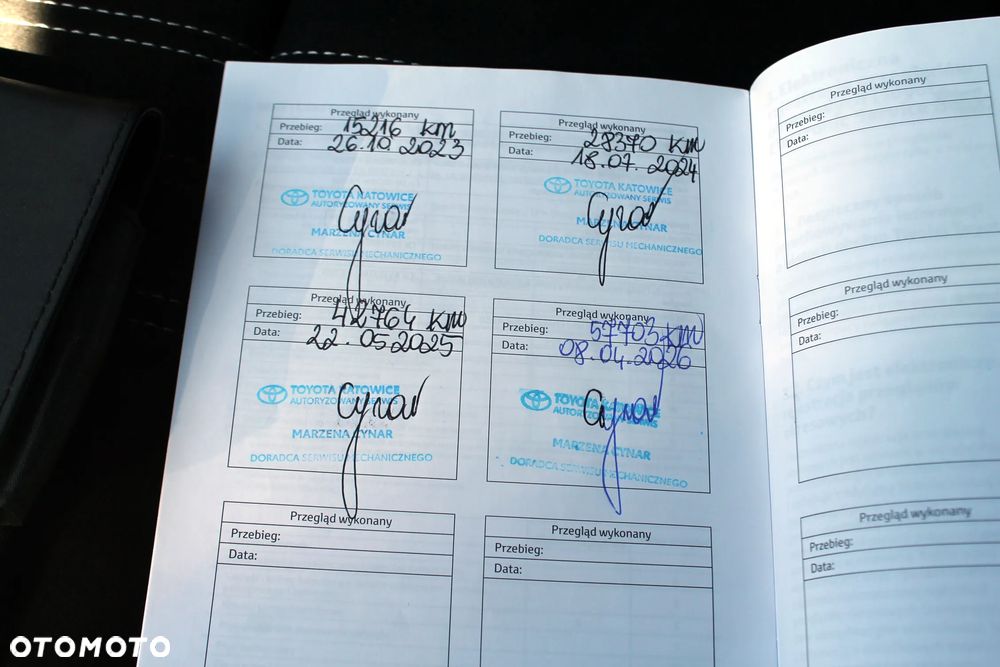 Przegląd wykonany
Przebieg: 15216 km
Data: 26.10.2023
TOYOTA KATOWICE
AUTORYZOWANY SERWIS
Cynar
MARZENA CYNAR
DORADCA SERWISU MECHANICZNEGO
Przegląd wykonany
Przebieg: 28370 km
Data: 18.07.2024
TOYOTA KATOWICE
AUTORYZOWANY SERWIS
Cynar
MARZENA CYNAR
DORADCA SERWISU MECHANICZNEGO
Przegląd wykonany
Przebieg: 42764 km
Data: 22.05.2025
TOYOTA KATOWICE
AUTORYZOWANY SERWIS
Cynar
MARZENA CYNAR
DORADCA SERWISU MECHANICZNEGO
Przegląd wykonany
Przebieg: 57703 km
Data: 08.04.2026
TOYOTA KATOWICE
AUTORYZOWANY SERWIS
Cynar
MARZENA CYNAR
DORADCA SERWISU MECHANICZNEGO
Przegląd wykonany
Przebieg:
Data:
Przegląd wykonany
Przebieg:
Data:
Przegląd wykonany
Przebieg:
Data:
Przegląd wykonany
Przebieg:
Data:
Przegląd wykonany
Przebieg:
Data:
OTOMOTO